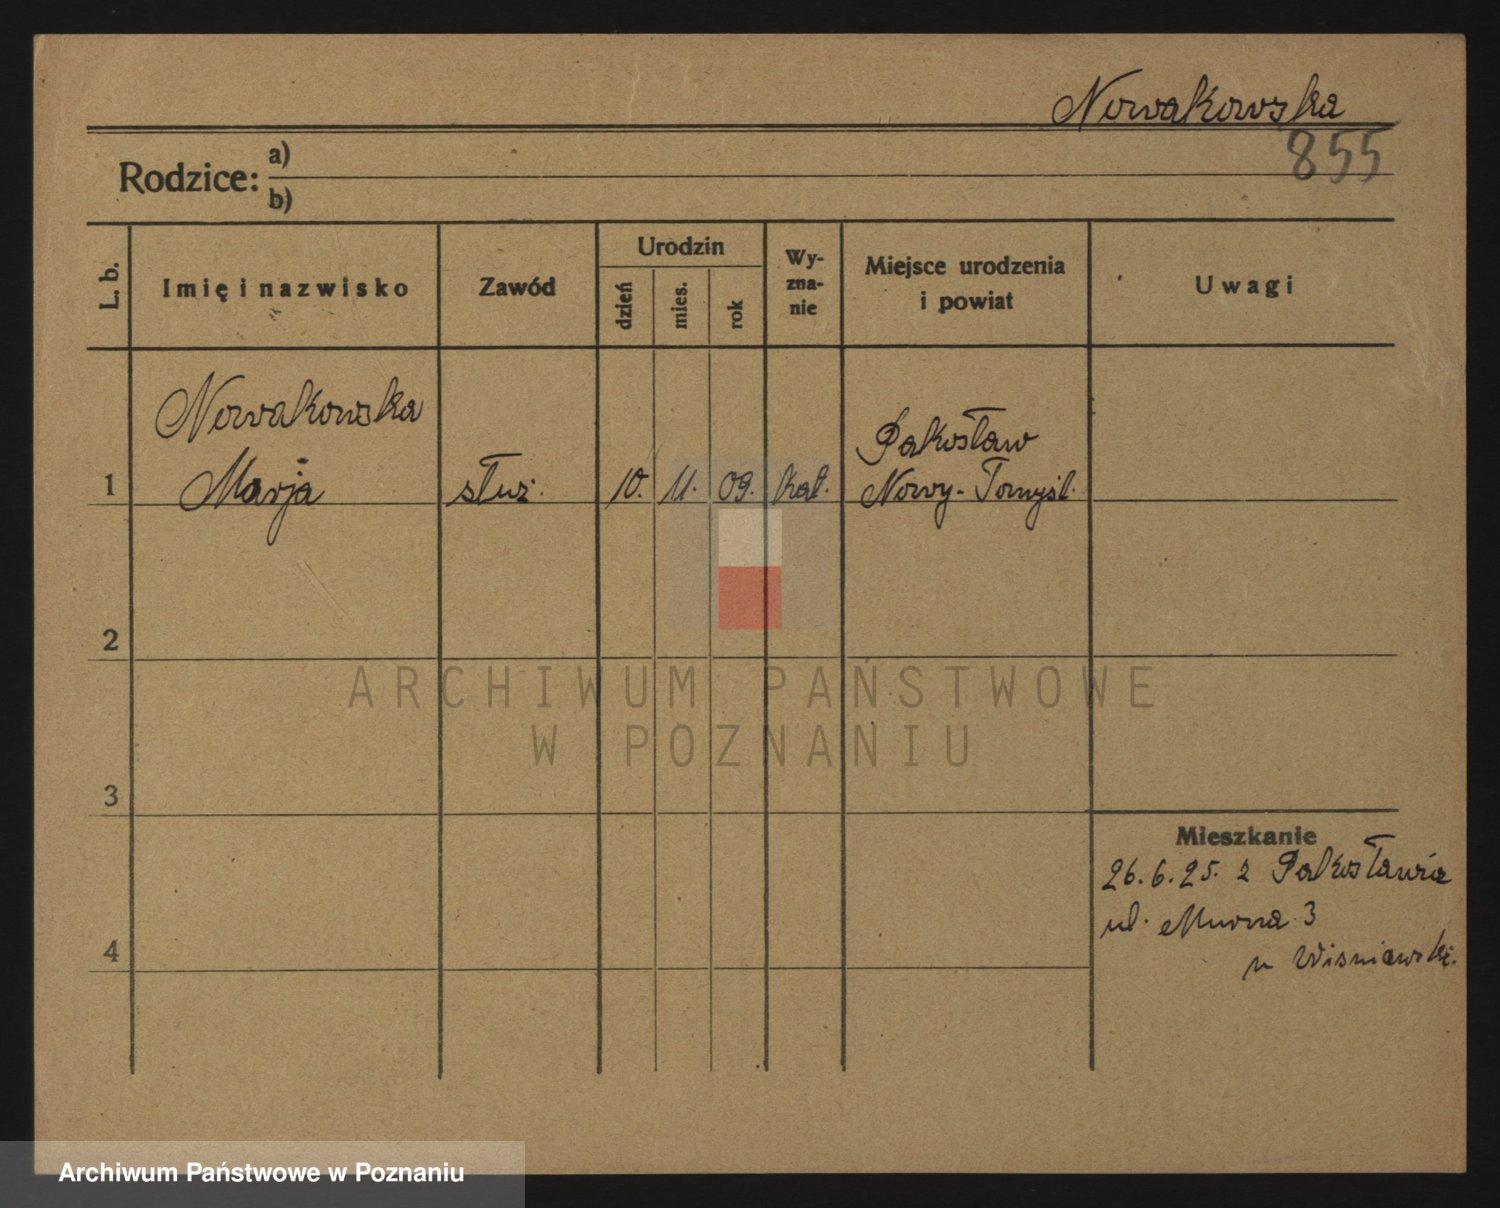 Nowakowska
855
Rodzice: a)
b)
L. b.
Imię i nazwisko
Zawód
Urodzin
dzień
mies.
rok
Wy-
zna-
nie
Miejsce urodzenia
i powiat
Uwagi
Nowakowska
Pakosław
1 Marja służ. 10. 11. 09. kat. Nowy-Tomyśl.
2
ARCHIWUM PAŃSTWOWE
W POZNANIU
3
Mieszkanie
26.6.25. z Pakosławia
ul. Murna 3
4
u Wisniewski.
Archiwum Państwowe w Poznaniu